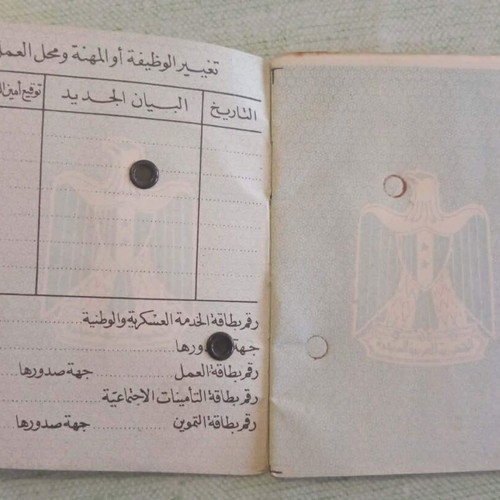 تغيير الوظيفة أو المهنة ومحل العمل
التاريخ البيان الجديد توقيع أمين
رقم بطاقة الخدمة العسكرية والوطنية
جهة صدورها
رقم بطاقة العمل جهة صدورها
رقم بطاقة التأمينات الاجتماعية
رقم بطاقة التموين جهة صدورها